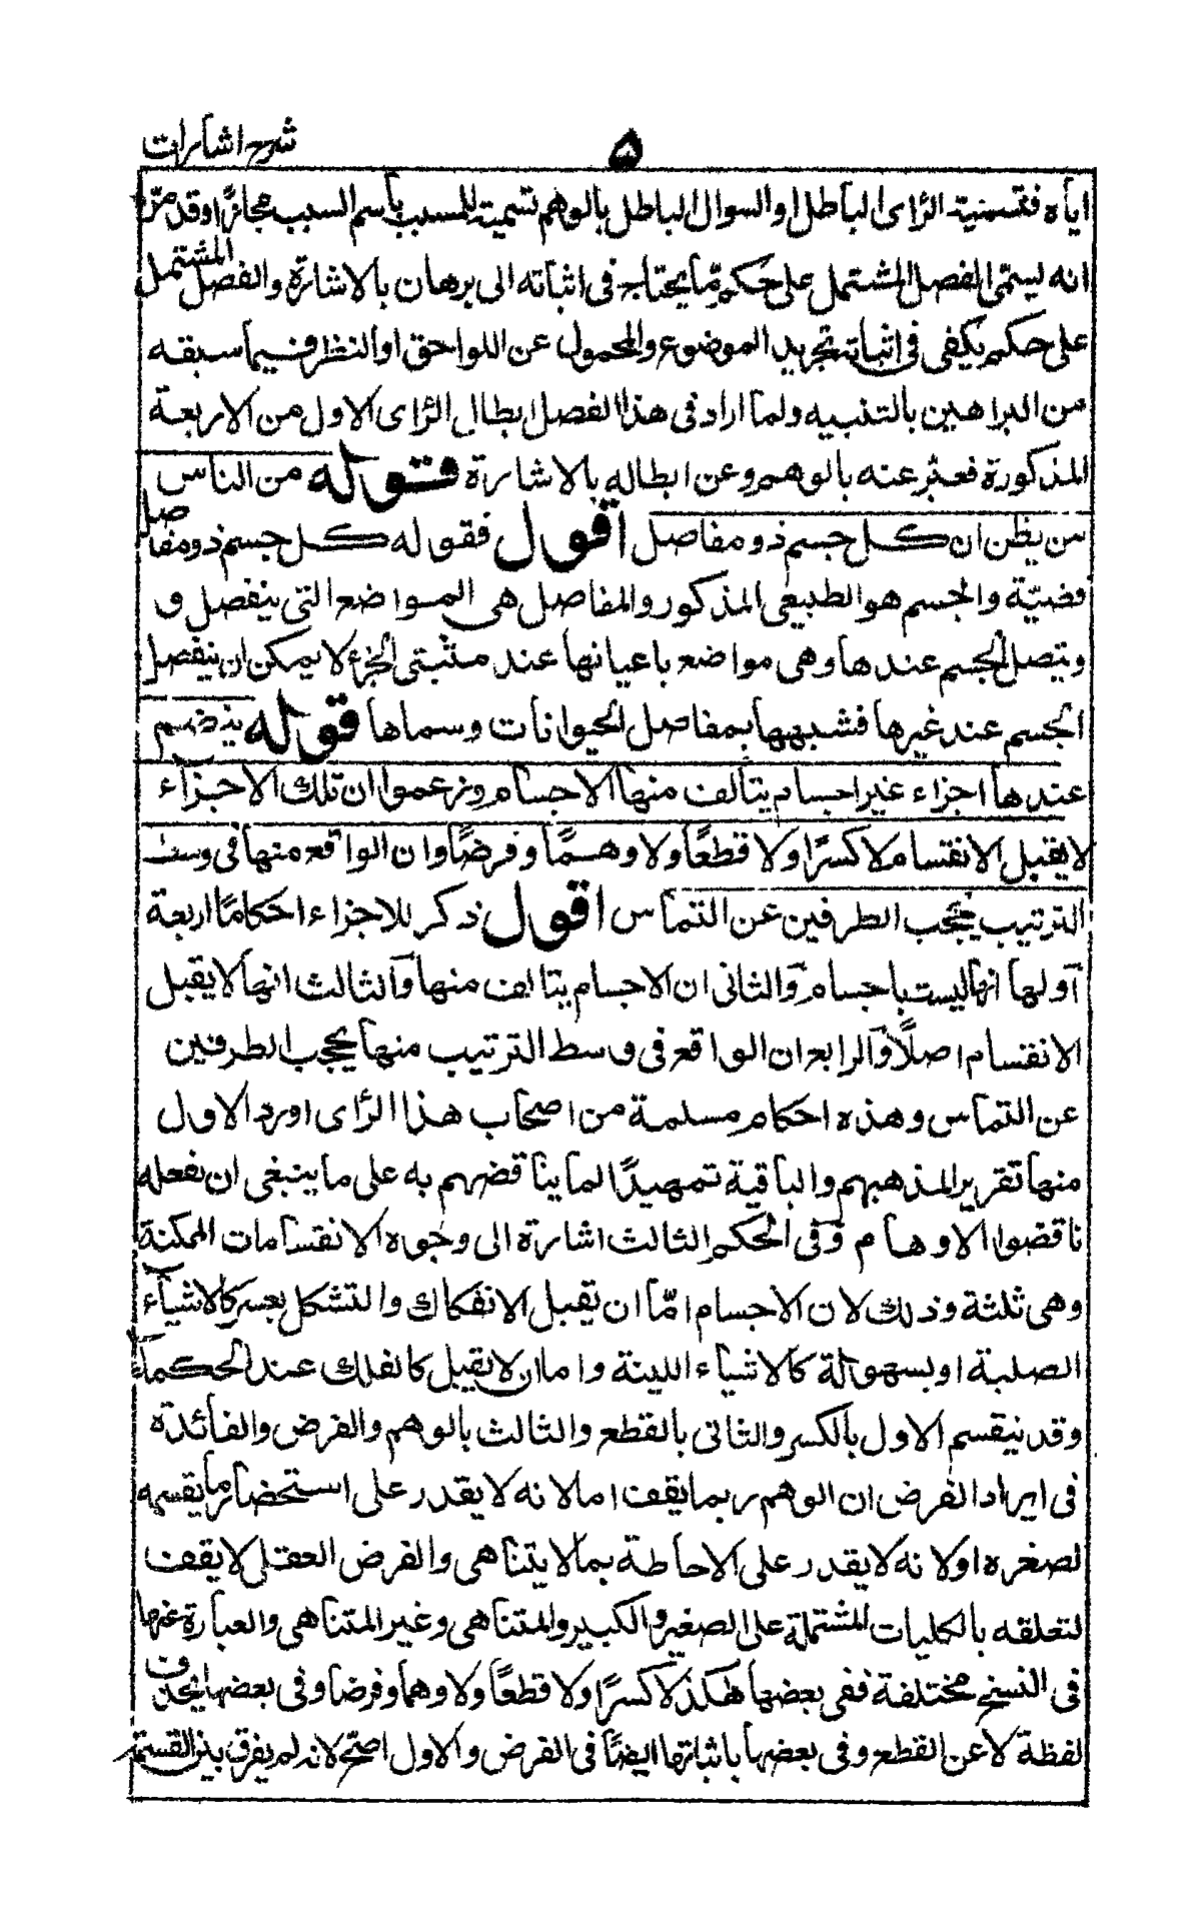 شرح اشارات
۵
اياه فتسمية الرأى الباطل او السوال الباطل بالوهم تسمية للمسبب باسم السبب مجازًا وقد مرّ
انه يسمّى الفصل المشتمل على حكم مّا يحتاج فى اثباته الى برهان بالاشارة والفصل المشتمل
على حكم يكفى فى اثباته تجريد الموضوع والمحمول عن اللواحق او النظر فيما سبقه
من البراهين بالتنبيه ولما اراد فى هذا الفصل ابطال الرأى الاول من الاربعة
المذكورة فعبّر عنه بالوهم وعن ابطاله بالاشارة قوله من الناس
من يظن ان كل جسم ذو مفاصل اقول فقوله كل جسم ذو مفاصل
قضيّة والجسم هو الطبيعى المذكور والمفاصل هى المواضع التى ينفصل و
ويتصل الجسم عندها وهى مواضع باعيانها عند مثبتى الجزء لا يمكن ان ينفصل
الجسم عند غيرها فشبهها بمفاصل الحيوانات وسماها قوله ينضم
عندها اجزاء غير اجسام يتالف منها الاجسام وزعموا ان تلك الاجزاء
لا يقبل الانقسام لا كسرًا ولا قطعًا ولا وهمًا وفرضًا وان الواقع منها فى وسط
الترتيب يحجب الطرفين عن التماس اقول ذكر للاجزاء احكامًا اربعة
آولها انها ليست باجسام وآلثانى ان الاجسام يتالف منها وآلثالث انها لا يقبل
الانقسام اصلًا وآلرابع ان الواقع فى وسط الترتيب منها يحجب الطرفين
عن التماس وهذه احكام مسلمة من اصحاب هذا الرأى اورد الاول
منها تقرير المذهبهم والباقية تمهيدًا لما يناقضهم به على ما ينبغى ان نفعله
ناقضوا الاوهام وفى الحكم الثالث اشارة الى وجوه الانقسامات الممكنة
وهى ثلثة وذلك لان الاجسام امّا ان يقبل الانفكاك والتشكل بعسر كالاشياء
الصلبة او بسهولة كالاشياء اللينة واما ان لا يقبل كالفلك عند الحكماء
وقد ينقسم الاول بالكسر والثانى بالقطع والثالث بالوهم والفرض والفائدة
فى ايراد الفرض ان الوهم ربما يقف اما لانه لا يقدر على استحضار ما يقسمه
لصغره او لانه لا يقدر على الاحاطة بما لا يتناهى والفرض العقلى لا يقف
لتعلقه بالكليات المشتملة على الصغير والكبير والمتناهى وغير المتناهى والعبارة عنها
فى النسخ مختلفة ففى بعضها هكذا لا كسرًا ولا قطعًا ولا وهما وفرضا وفى بعضها بحذف
لفظة لا عن القطع وفى بعضها باثباتها ايضًا فى الفرض والاول اصحّ لانه لم يفرق بين القسمة